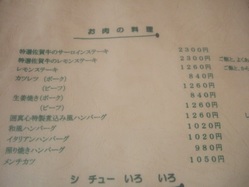 お肉の料理
特選佐賀牛のサーロインステーキ 2500円
特選佐賀牛のレモンステーキ 2300円
レモンステーキ 1260円
カツレツ(ポーク) 840円
(ビーフ) 1260円
生姜焼き(ポーク) 840円
(ビーフ) 1260円
特製煮込み風ハンバーグ 1260円
和風ハンバーグ 1020円
イタリアンハンバーグ 1020円
照り焼きハンバーグ 980円
メンチカツ 1050円
シチューいろいろ